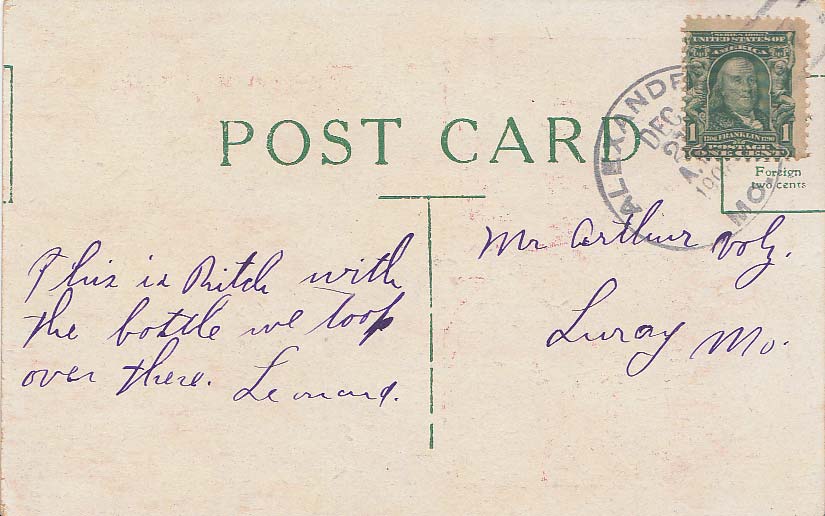 POST CARD
ALEXANDRIA
DEC
A.M.
190
MO.
SERIES 1902
UNITED STATES OF
AMERICA
1 FRANKLIN 1
POSTAGE
ONE CENT
Foreign
two cents
This is Ritch with
the bottle we took
over there.
Leonard.
Mr Arthur Volz.
Luray Mo.